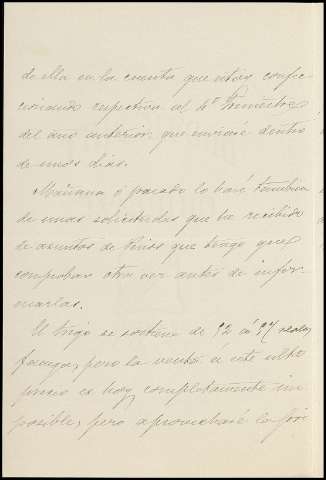 de ella en la cuenta que estoy confec-
cionando respectiva al 4º trimestre
del año anterior, que enviaré dentro
de unos dias.
Mañana ó pasado lo haré tambien
de unas solicitudes que he recibido
de asuntos de que tengo que
comprobar otra vez antes de infor-
marlas.
El trigo se sostiene de á 27 reales
fanega, pero la venta á este ultimo
precio es hoy completamente im-
posible, pero aprovecharé la